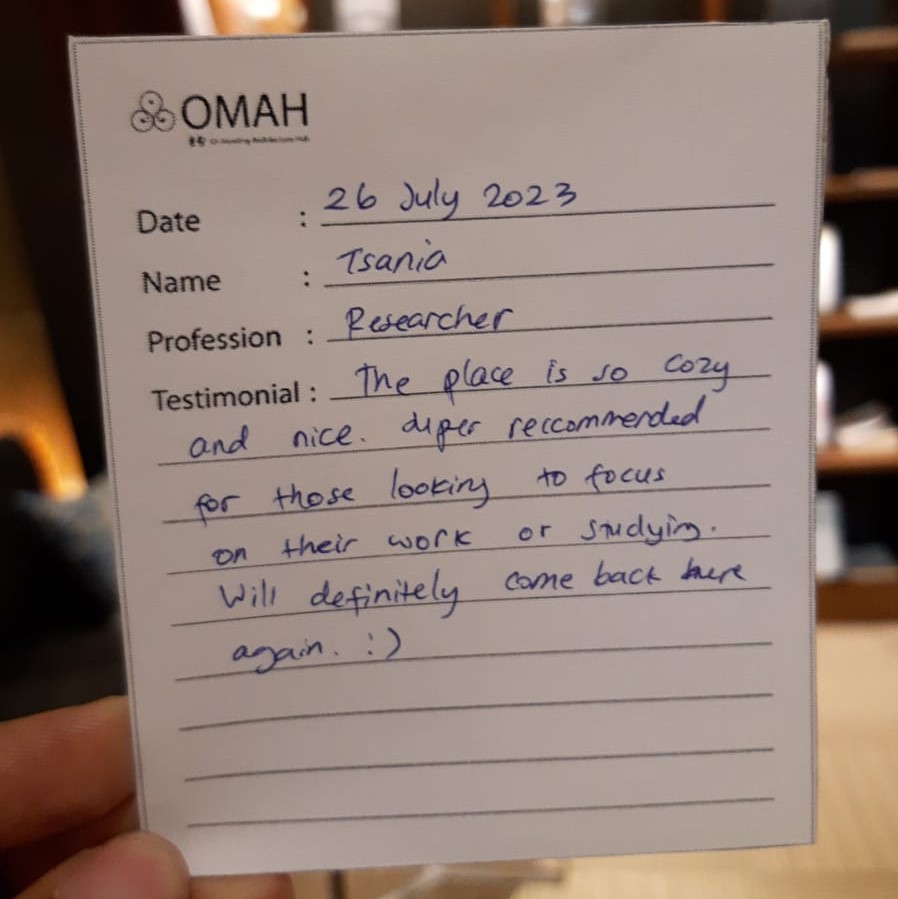 OMAH
Date : 26 July 2023
Name : Tsania
Profession : Researcher
Testimonial : The place is so cozy
and nice. super reccommended
for those looking to focus
on their work or studying.
Will definitely come back here
again. :)